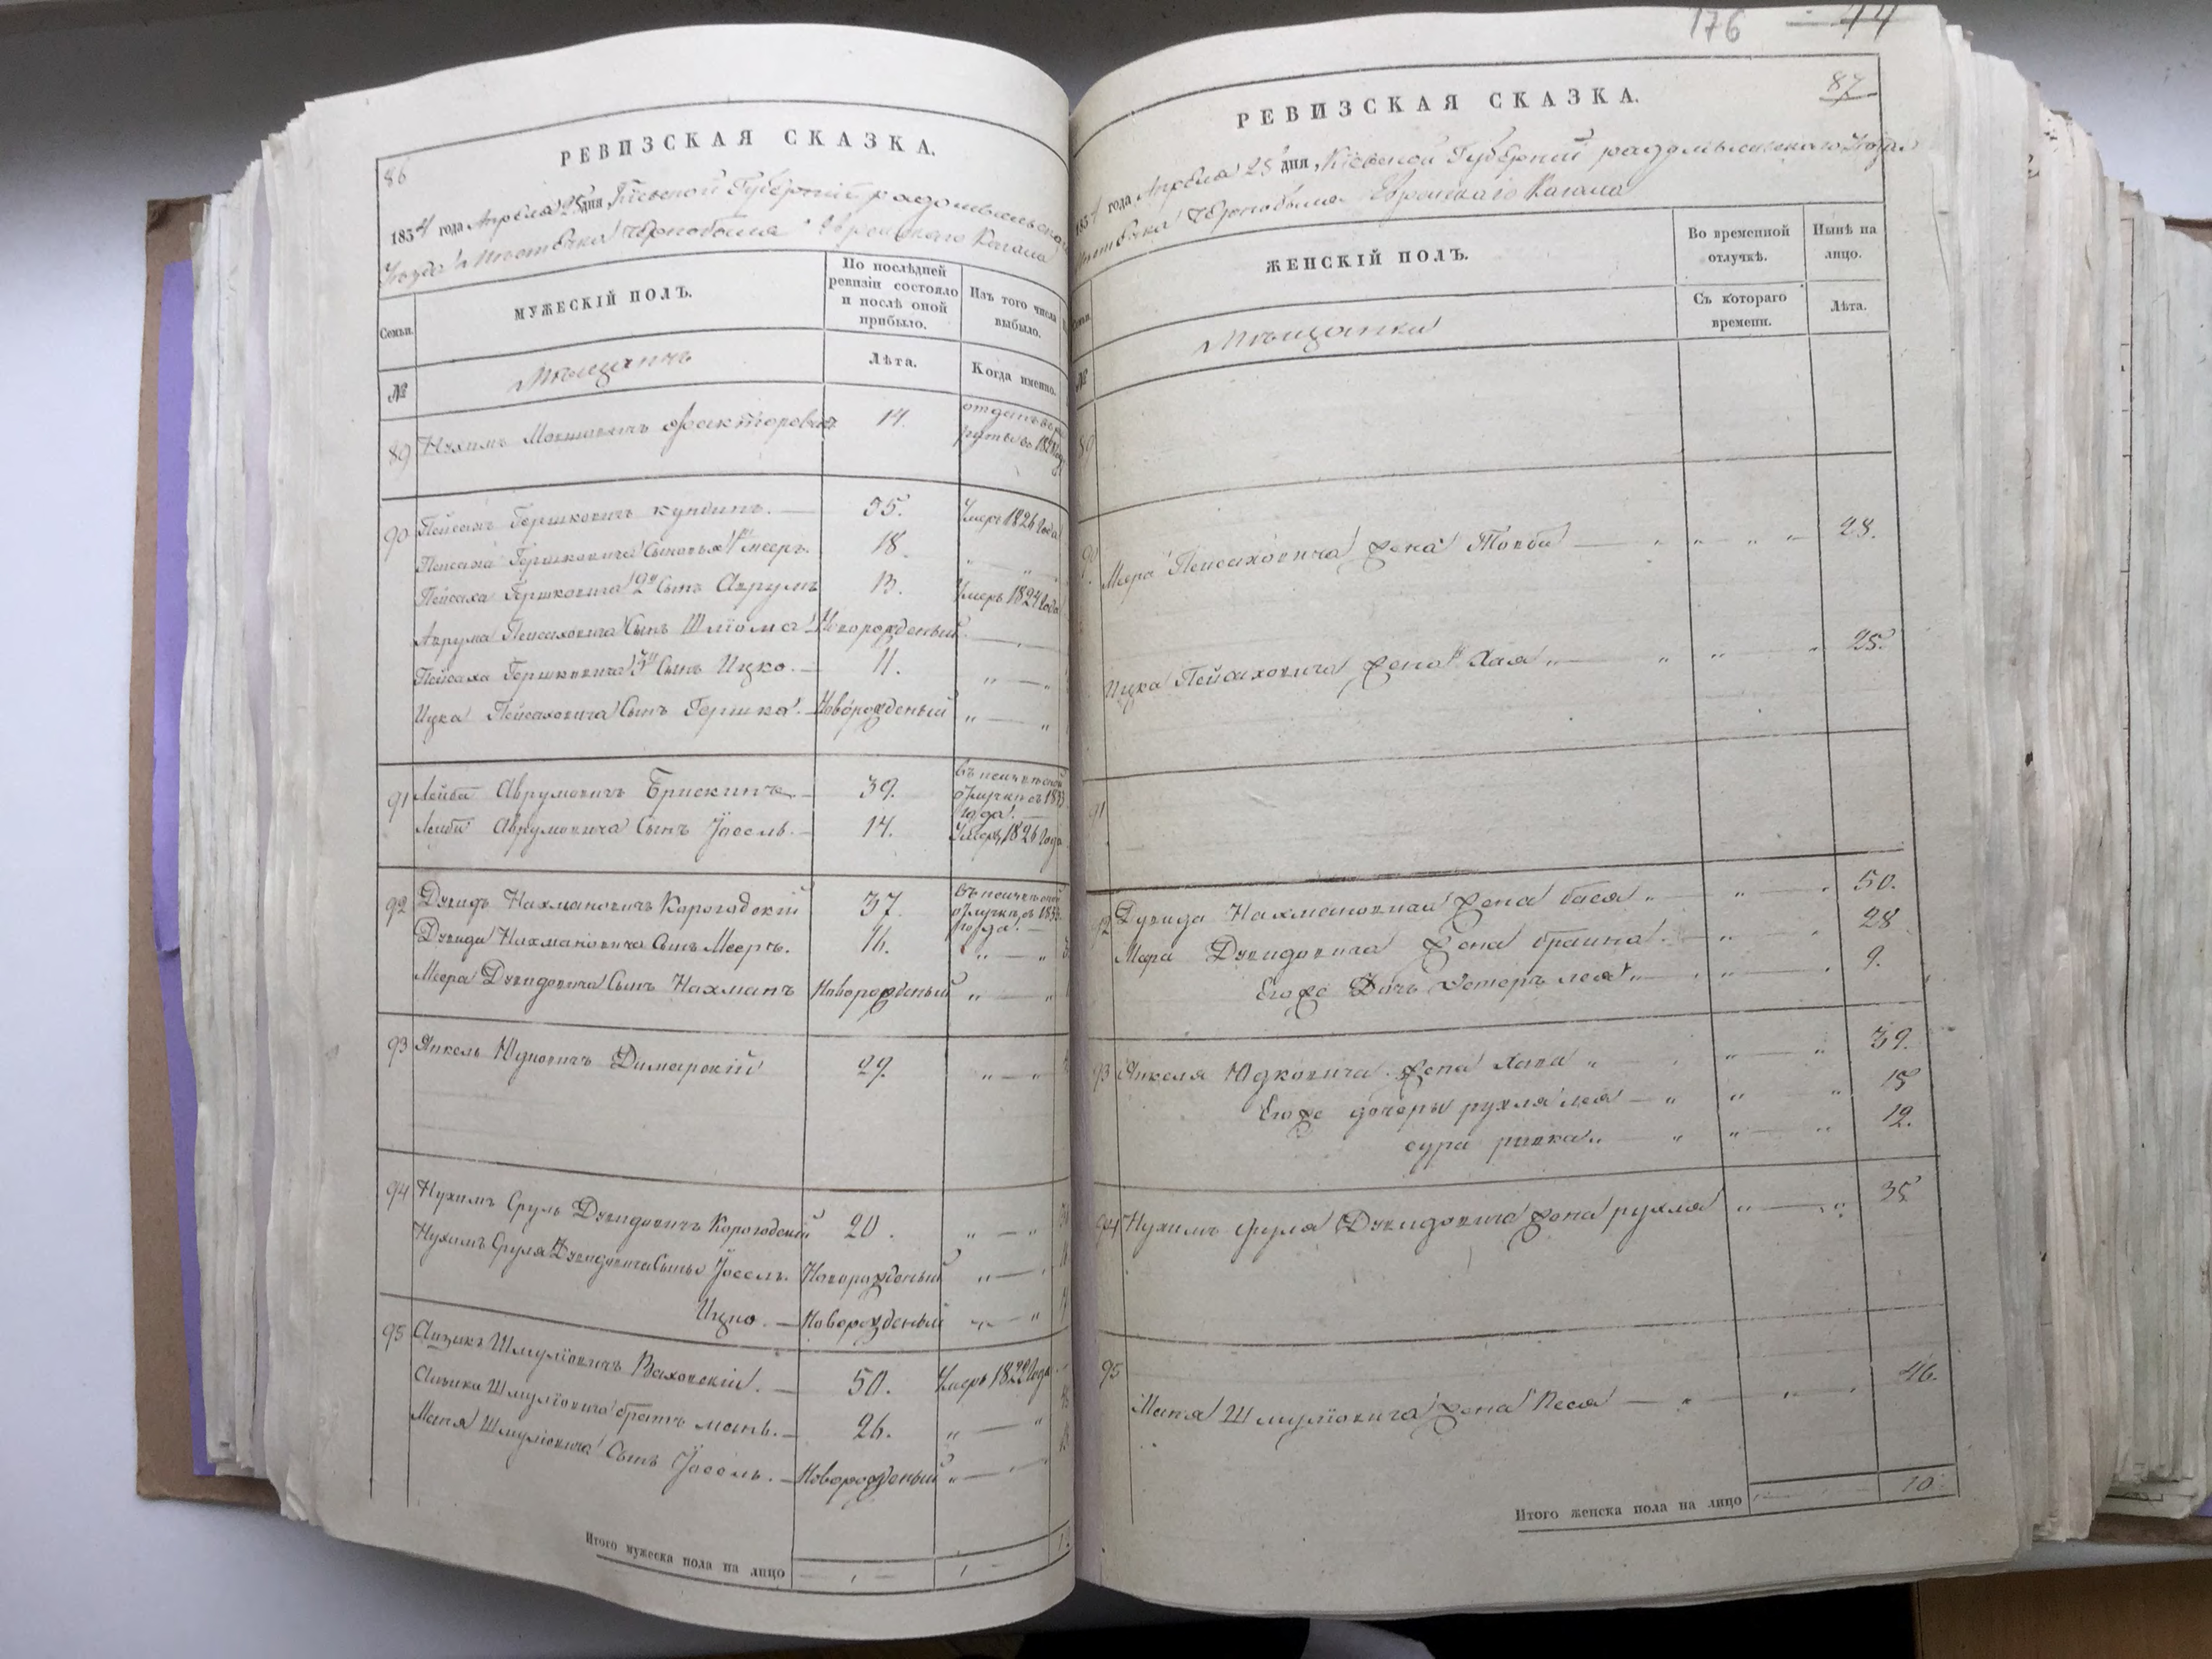 86
РЕВИЗСКАЯ СКАЗКА.
1834 года Апреля 25 дня Кіевской Губерніи радомысльскаго
Уезда Местечка Чернобыля Еврейскаго Кагала
Семьи.
МУЖЕСКІЙ ПОЛЪ.
По послѣдней ревизіи состояло и послѣ оной прибыло.
Изъ того числа выбыло.
№
Мѣщанинъ
Лѣта.
Когда именно.
89 Нухимъ Мошковичъ Факторовичъ 14. отданъ въ рекруты въ 1828 году
90 Пейсахъ Гершковичъ кундинъ. 35. Умеръ 1826 года
Пейсаха Гершковича Сыновья 1й мееръ. 18. " "
Пейсаха Гершковича 2й Сынъ Аврумъ 13. Умеръ 1824 года
Аврума Пейсаховича Сынъ Шліома Новорожденый. "
Пейсаха Гершковича 3й Сынъ Ицко. 11. " — "
Ицка Пейсаховича Сынъ Гершко. Новорожденый " — "
91 Лейба Аврумовичъ Брискинъ. 39. отлучки съ 1833 года. —
Лейбы Аврумовича Сынъ Іосель. 14. Умеръ 1826 года
92 Дувидъ Нахмановичъ Карогодскій 37. отлучки съ 1833 года. —
Дувида Нахмановича Сынъ Мееръ. 16. " — "
Меера Дувидовича Сынъ Нахманъ Новорожденый " — "
93 Янкель Юдковичъ Димарскій 29. " — "
94 Нухимъ Сруль Дувидовичъ Корогодскій 20. " — "
Нухимъ Сруля Дувидовича Сынъ Іосель. Новорожденый " — "
Ицко. — Новорожденый " — "
95 Аизикъ Шмуліовичъ Ваховскій. — 50. Умеръ 1822 года
Аизика Шмуліовича братъ мань. — 26. " — "
Маня Шмуліовича Сынъ Іосель. — Новорожденый " — "
Итого мужеска пола на лицо
176 — 44
87
РЕВИЗСКАЯ СКАЗКА.
1834 года Апреля 25 дня Кіевской Губерніи радомысльскаго Уезда
Местечка Чернобыля Еврейскаго Кагала
Семьи.
ЖЕНСКІЙ ПОЛЪ.
Во временной отлучкѣ.
Нынѣ на лицо.
№
Мѣщанки
Съ котораго времени.
Лѣта.
89
90 Меера Пейсаховича жена Товба — " " " " 28.
Ицка Пейсаховича жена Хая " — " " — " 25.
91
92 Дувида Нахмановича жена бася " " — " 50.
Меера Дувидовича жена браина. — " — " 28
Егоже Дочь Эстеръ лея " — " " — " 9.
93 Янкеля Юдковича жена Хава " " — " 39.
Егоже дочеры рухля лея — " " " 15
сура ривка " — " " — " 12.
94 Нухимъ Сруля Дувидовича жена рухля " — " 35
95
Маня Шмуліовича жена Песя — " " " 46.
Итого женска пола на лицо 10.